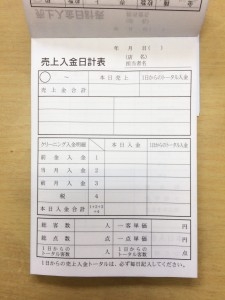 年 月 日 ( )
売上入金日計表
(店名)
担当者名
〜 本日売上 1日からのトータル入金
売上金合計
クリーニング入金明細 本日入金 1日からのトータル入金
前金入金 1
当月入金 2
前月入金 3
税 4
本日入金合計
総客数 人 一客単価 円
総点数 点 一点単価 円
1日からのトータル客数 人 1日からの 円
1日からの売上入金トータルは、必ず毎日記入してください。